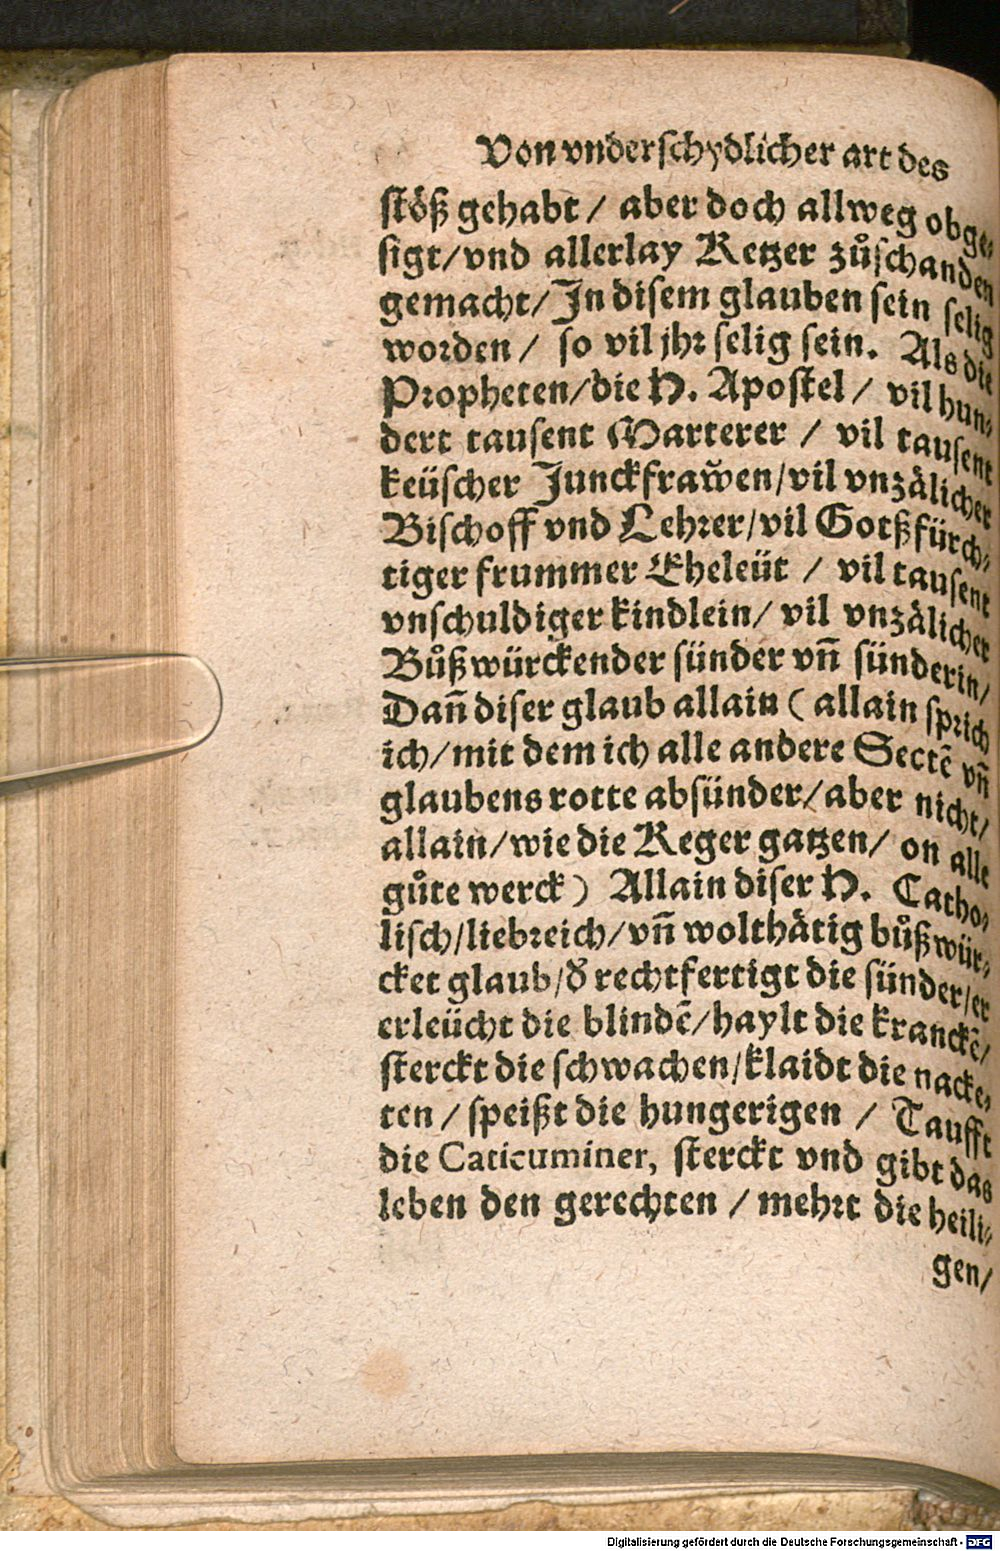 Von vnderschydlicher art des
stöß gehabt / aber doch allweg obge-
sigt/vnd allerlay Ketzer zůschanden
gemacht/In disem glauben sein selig
worden / so vil jhr selig sein. Als die
Propheten/die H. Apostel / vil hun-
dert tausent Marterer / vil tausent
keüscher Junckfraw̆en/vil vnzålicher
Bischoff vnd Lehrer/vil Gotßfürch-
tiger frummer Eheleüt / vil tausent
vnschuldiger kindlein/ vil vnzålicher
Bůßwürckender sünder vn̄ sünderin/
Dan̄ diser glaub allain ( allain sprich
ich/mit dem ich alle andere Sectē vn̄
glaubens rotte absünder/aber nicht/
allain/wie die Keger gatzen/ on alle
gůte werck ) Allain diser H. Catho-
lisch/liebreich/vn̄ wolthätig bůßwür-
cket glaub/d̾ rechtfertigt die sünder/er
erleücht die blindē/haylt die kranckē/
sterckt die schwachen/klaidt die nacke-
ten / speißt die hungerigen / Taufft
die Caticuminer, sterckt vnd gibt das
leben den gerechten / mehrt die heili-
gen/
Digitalisierung gefördert durch die Deutsche Forschungsgemeinschaft - DFG